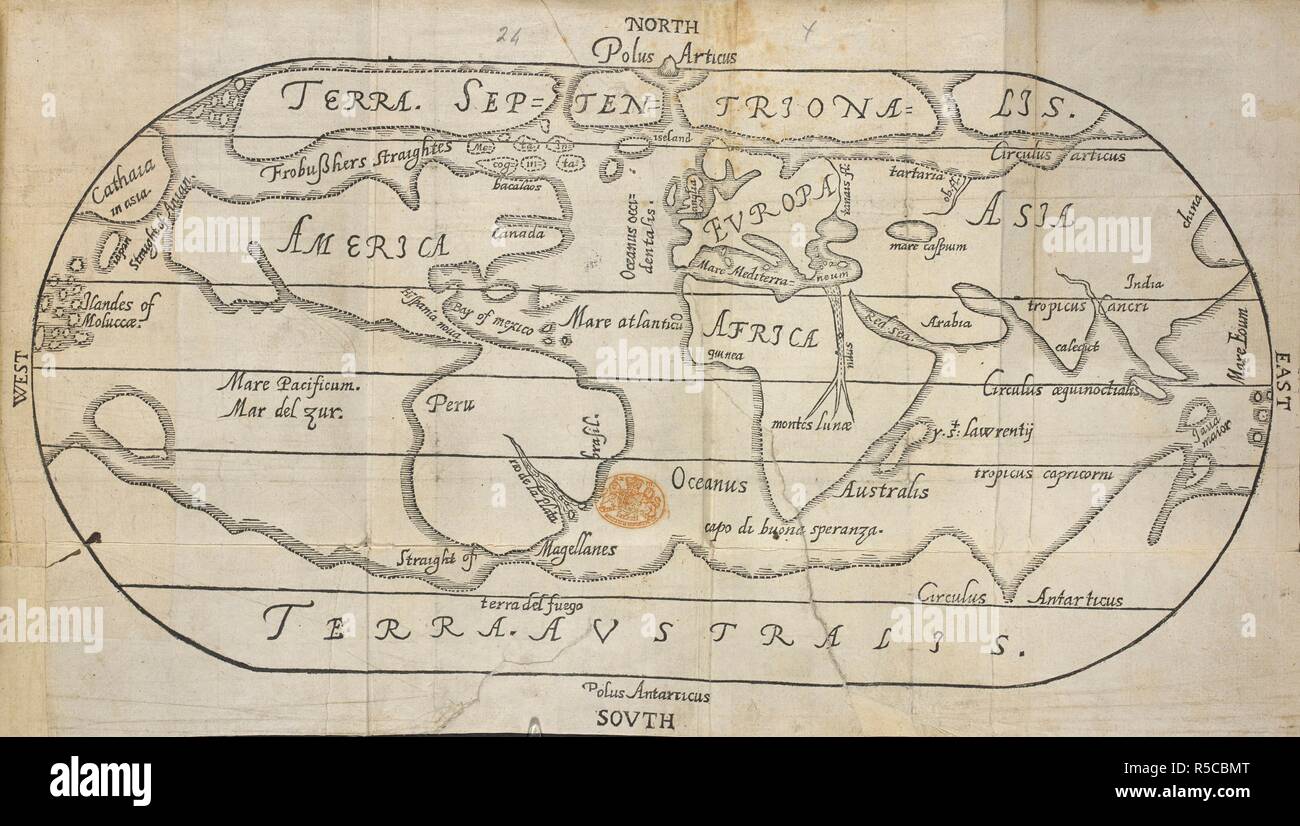 24
NORTH
Polus Articus
TERRA. SEP= TEN= TRIONA= LIS.
iseland
Me= ta= in=
cog= in= ta=
Frobußhers Straightes
Circulus articus
Cathaia
in asia.
Straight of Anian.
bacalaos
anglia
EVROPA
tanais fl.
tartaria
ob. fl.
ASIA
china
AMERICA
Canada
Oceanus occi=
dentalis.
mare caspium
Iapan
Mare Mediterra=
neum
Hispania noua
Bay of mexico
Mare atlanticū
India
tropicus cancri
Ilandes of
Moluccæ.
AFRICA
guinea
Red Sea.
Arabia
nilus
calecut
Mare Eoum.
WEST
EAST
Mare Pacificum.
Mar del zur.
Peru
brasil.
Circulus æquinoctialis
montes lunæ
y. St. lawrentij
Iaua
maior
rio de la Plata
Oceanus Australis
tropicus capricorni
capo di buona speranza.
Straight of Magellanes
terra del fuego
Circulus Antarticus
TERRA. AVSTRALIS.
Polus Antarticus
SOVTH
alamy
Image ID: R5CBMT
www.alamy.com